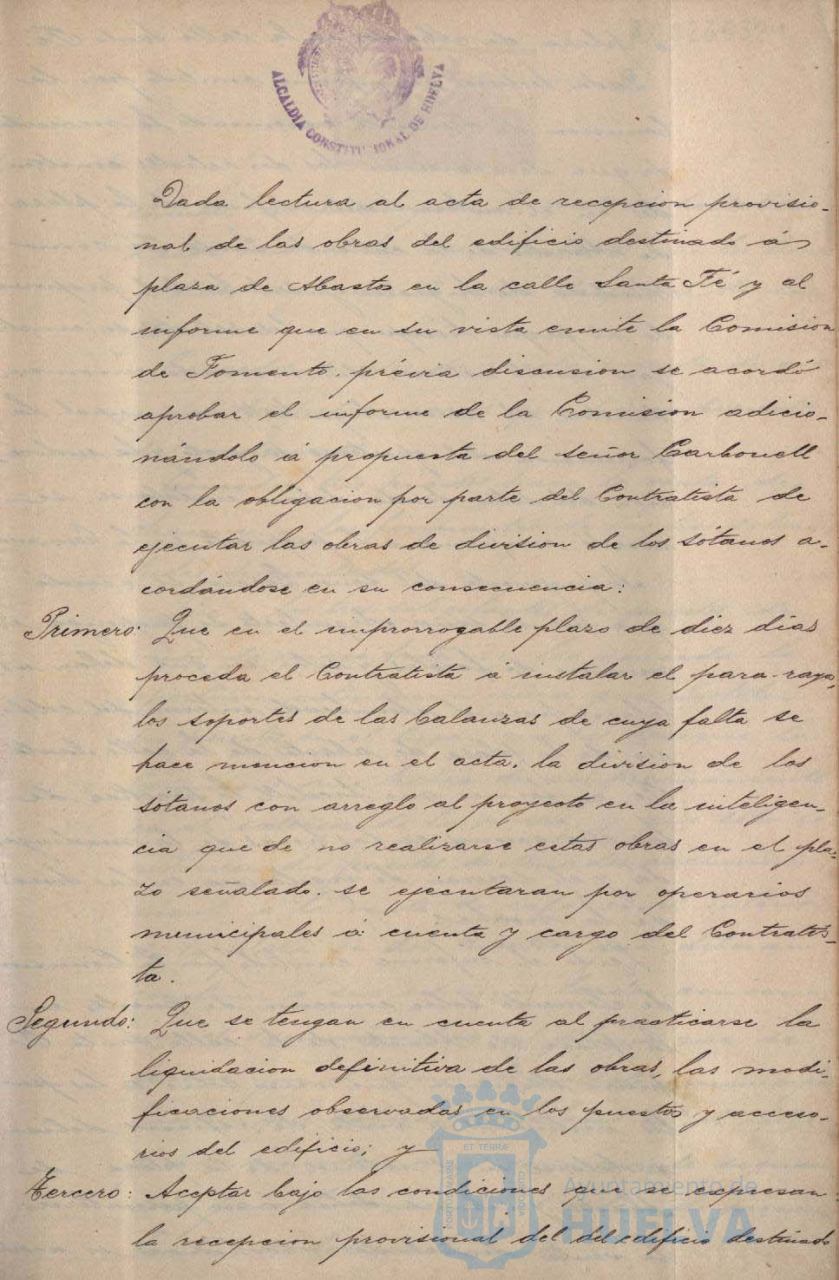 ALCALDIA CONSTITUCIONAL DE HUELVA
Dada lectura al acta de recepcion provisio-
nal de las obras del edificio destinado á
plaza de Abastos en la calle Santa Fé y al
informe que en su vista emite la Comision
de Fomento. prévia discusion se acordó
aprobar el informe de la Comision adicio-
nándolo á propuesta del señor Carbonell
con la obligacion por parte del Contratista de
ejecutar las obras de division de los sótanos a-
cordándose en su consecuencia:
Primero: Que en el improrrogable plazo de diez dias
proceda el Contratista á instalar el para-rayo,
los soportes de las balanzas de cuya falta se
hace mencion en el acta. la division de los
sótanos con arreglo al proyecto en la inteligen-
cia que de no realizarse estas obras en el pla-
zo señalado. se ejecutaran por operarios
municipales á cuenta y cargo del Contratis-
ta.
Segundo: Que se tengan en cuenta al practicarse la
liquidacion definitiva de las obras, las modi-
ficaciones observadas en los puestos y acceso-
rios del edificio; y
Tercero: Aceptar bajo las condiciones que se expresan
la recepcion provisional del del edificio destinado
ET TERRÆ
Ayuntamiento de
HUELVA